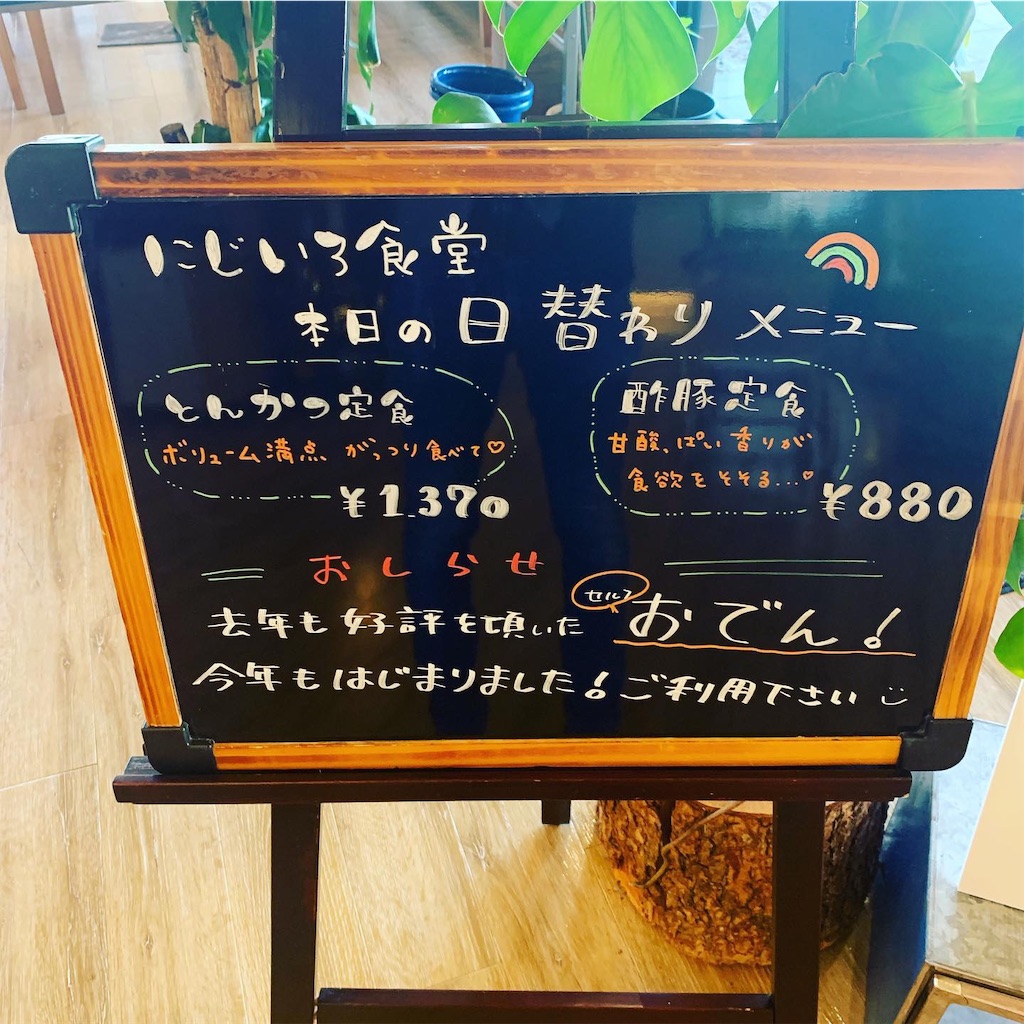 にじいろ食堂
本日の日替わりメニュー
とんかつ定食
ボリューム満点 がっつり食べて♡
¥1,370
酢豚定食
甘酸っぱい香りが
食欲をそそる...♡
¥880
おしらせ
去年も好評を頂いた セルフ おでん!
今年もはじまりました!ご利用下さい